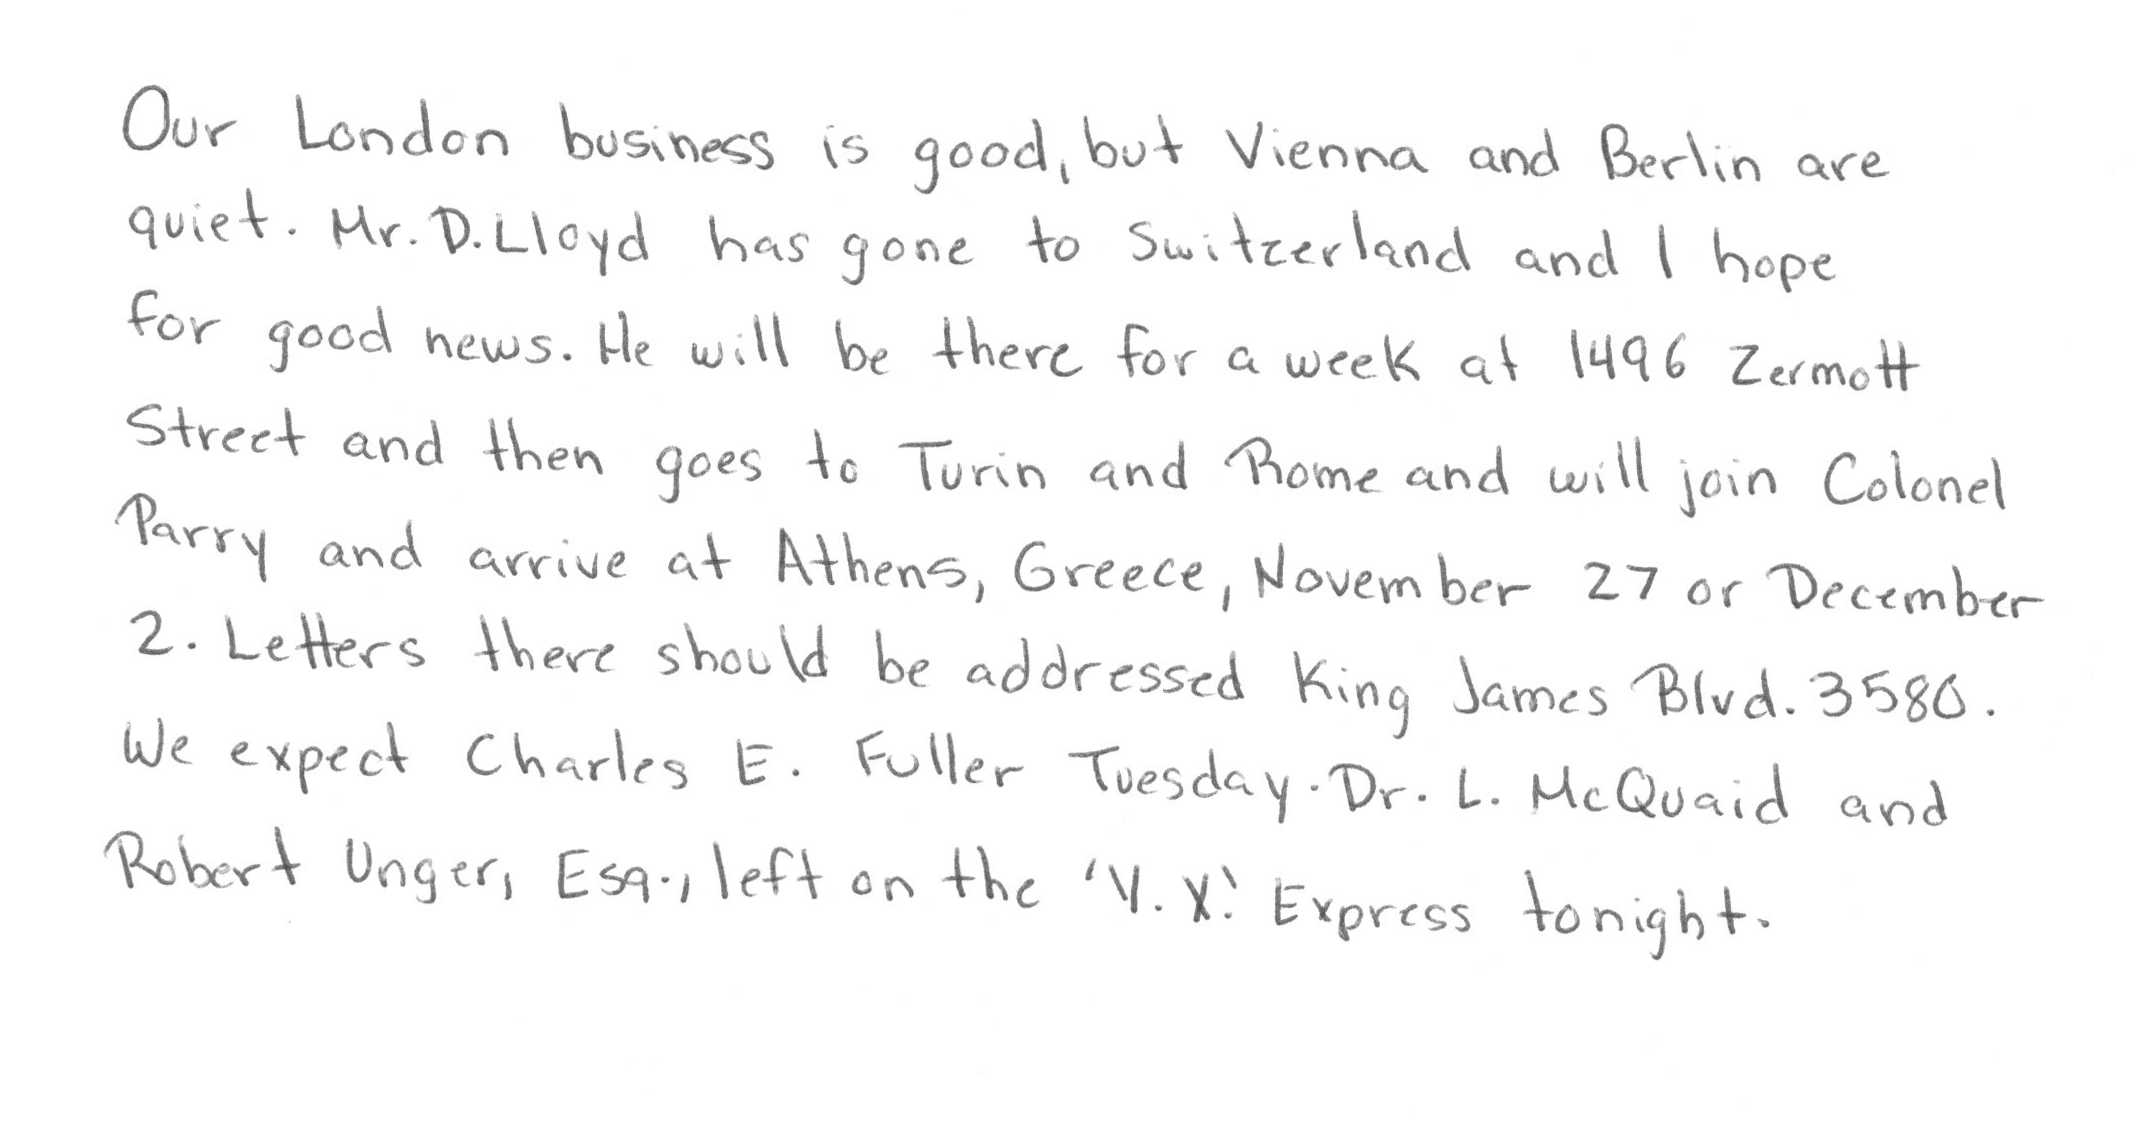 Our London business is good, but Vienna and Berlin are
quiet. Mr. D. Lloyd has gone to Switzerland and I hope
for good news. He will be there for a week at 1496 Zermott
Street and then goes to Turin and Rome and will join Colonel
Parry and arrive at Athens, Greece, November 27 or December
2. Letters there should be addressed King James Blvd. 3580.
We expect Charles E. Fuller Tuesday. Dr. L. McQuaid and
Robert Unger, Esq., left on the 'Y. X.' Express tonight.